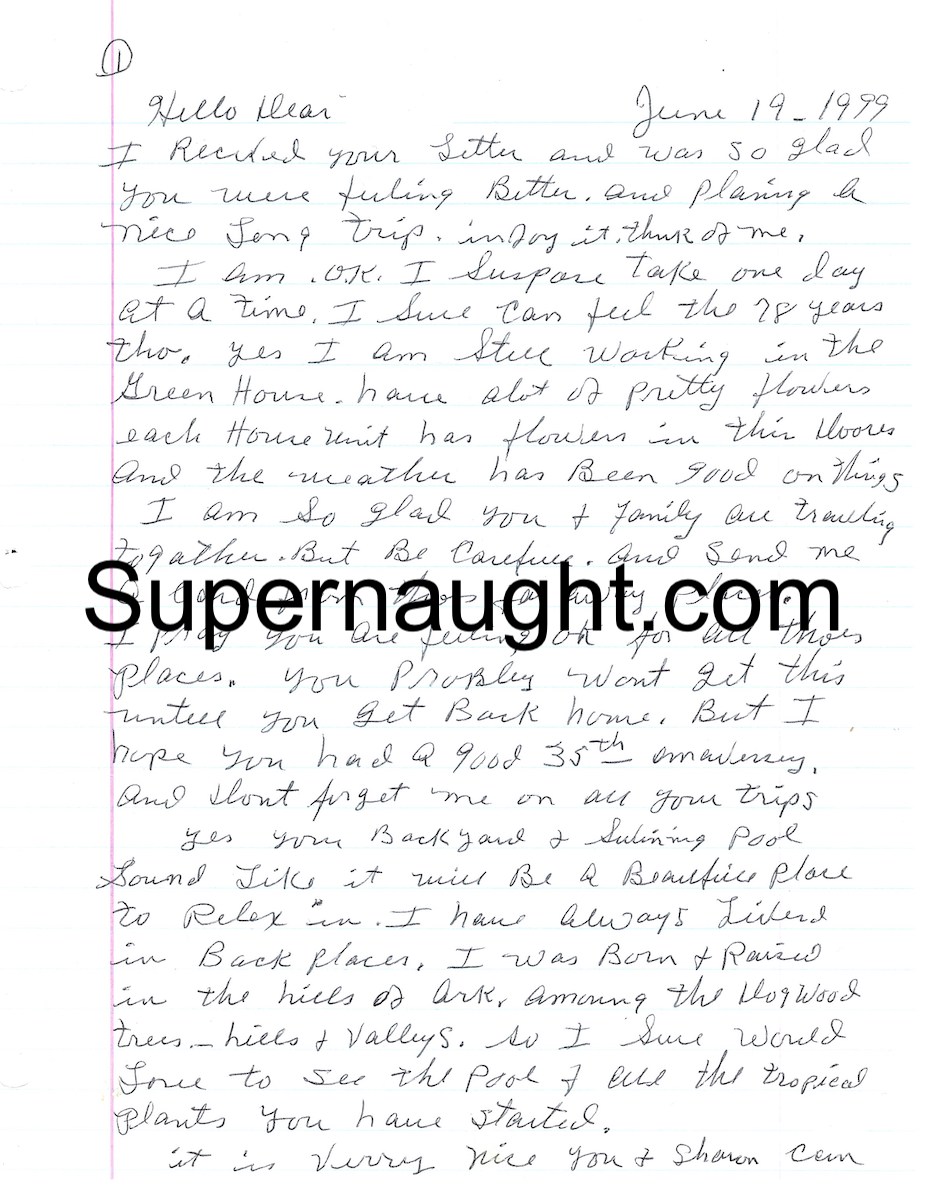 1
Hello Dear June 19-1999
I Recived your Letter and was so glad
you were feeling Better. and planing a
nice Long trip. injoy it. think of me.
I am .O.K. I Suspose take one day
at a time. I Sure can feel the 78 years
tho. yes I am Still working in the
Green House. have alot of pretty flowers
each House unit has flowers in thir Doores
And the weather has Been good on things
I am So glad you & family are traveling
togather. But Be Carefull. And Send me
a Card from thos far away places.
Supernaught.com
I pray you are feeling ok for all thoes
places. you Probley wont get this
untill you get Back home. But I
hope you had a good 35th annaversey.
And dont forget me on all your trips
yes your Back yard & Swiming pool
Sound Like it will Be a Beautifull place
to Relax in. I have always Liverd
in Back places. I was Born & Raised
in the hills of Ark. amoung the DogWood
trees - hills & Valleys. so I Sure would
Love to see the pool & all the tropical
plants you have started.
it is Verry nice you & Sharon can